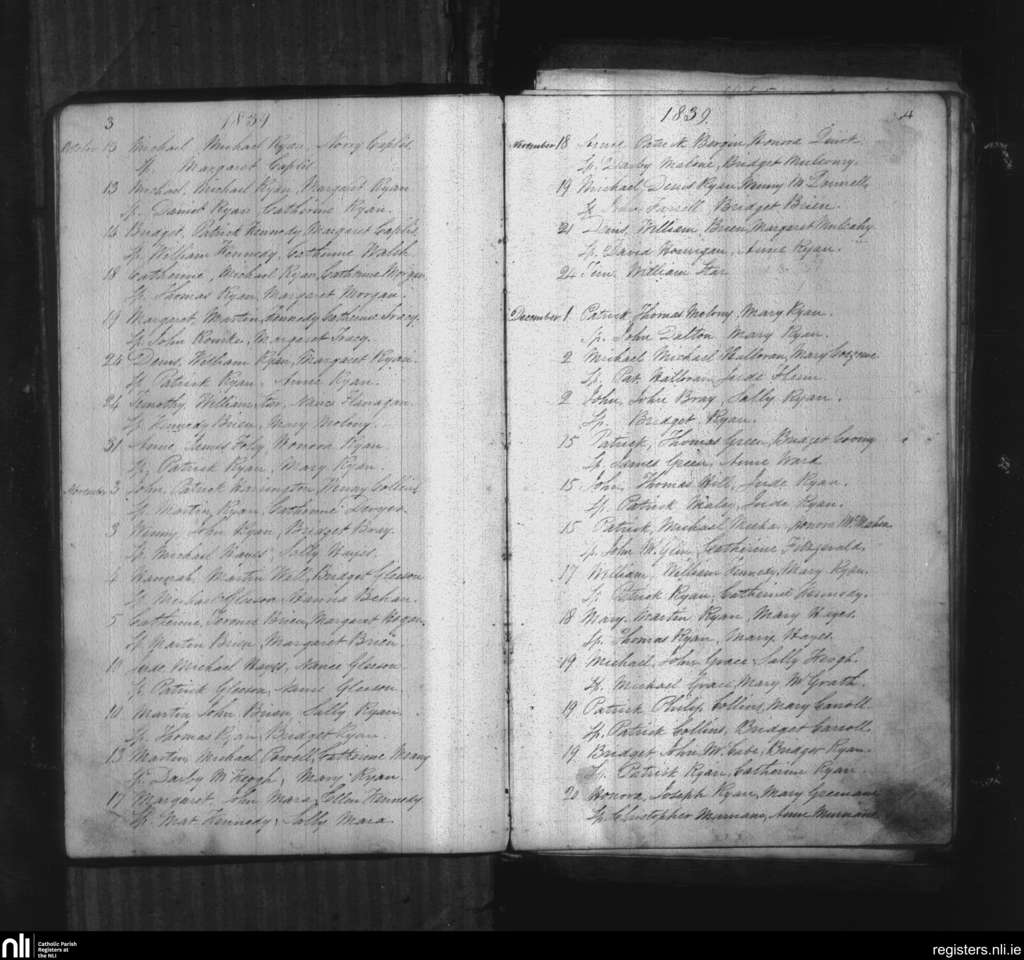 3 1839
October 13 Michael, Michael Ryan, Norry Caplis
Sp. Margaret Caplis
13 Michael, Michael Ryan, Margaret Ryan
Sp. Daniel Ryan Catherine Ryan.
14 Bridget, Patrick Kennedy Margaret Caplis
Sp. William Kennedy, Catherine Walsh
18 Catherine, Michael Ryan, Catherine Morgan
Sp. Thomas Ryan Margaret Morgan.
19 Margaret, Martin Kennedy Catherine Tracy.
Sp. John Rourke, Margaret Tracy.
24 Denis, William Ryan, Margaret Ryan.
Sp. Patrick Ryan. Anne Ryan.
24 Timothy, William Nance Flanagan.
Sp. Kennedy Brien, Mary Molony.
31 Anne, James Foly, Honora Ryan
Sp. Patrick Ryan, Mary Ryan.
November 3 John, Patrick Harrington Collins
Sp. Martin Ryan, Catherine Dwyer
3 Winny, John Ryan, Bridget Bray.
Sp. Michael Hayes, Sally Hayes.
4 Hannah, Martin Well, Bridget Gleeson
Sp. Michael Gleeson Hanna Behan.
5 Catherine, Terence Brien, Margaret Hogan
Sp. Martin Brien, Margaret Brien
10 Jude, Michael Hayes, Nance Gleeson
Sp. Patrick Gleeson, Nance Gleeson.
10 Martin, John Brien, Sally Ryan.
Sp. Thomas Ryan, Bridget Ryan.
13 Martin, Michael Powell, Catherine Meany
Sp. Darby McKeogh, Mary Ryan.
17 Margaret, John Mara, Ellen Kennedy
Sp. Mat Kennedy, Sally Mara
1839. 4
November 18 Anne Patrick Bergin, Honora
Sp. Darby Malone, Bridget Mulcony.
19 Michael, Denis Ryan, Winny McDonnell,
Sp. John Bridget Brien.
21 Denis, William Brien, Margaret Mulcahy
Sp. David Hourigan, Anne Ryan.
24 Tim, William
December 1 Patrick Thomas Molony, Mary Ryan.
Sp. John Dalton Mary Ryan.
2 Michael Michael Halloran, Mary
Sp. Pat. Halloran, Jude
2 John, John Bray, Sally Ryan.
Sp. Bridget Ryan.
15 Patrick, Thomas Green, Bridget Coony
Sp. James Green, Anne Ward
15 John, Thomas Hill, Jude Ryan.
Sp. Patrick Maley, Jude Ryan.
15 Patrick, Michael Meehan, Honora McMahon
Sp. John Catherine Fitzgerald.
17 William, William Kennedy, Mary Ryan.
Sp. Patrick Ryan, Catherine Kennedy.
18 Mary, Martin Ryan, Mary Hayes.
Sp. Thomas Ryan, Mary Hayes
19 Michael, John Grace, Sally Keogh.
Sp. Michael Grace, Mary McGrath.
19 Patrick Philip Collins, Mary Carroll
Sp. Patrick Collins, Bridget Carroll
19. Bridget John McCabe, Bridget Ryan.
Sp. Patrick Ryan, Catherine Ryan.
20 Honora, Joseph Ryan, Mary
Sp. Christopher Murnane, Anne Murnane
nli Catholic Parish Registers at the NLI
registers.nli.ie